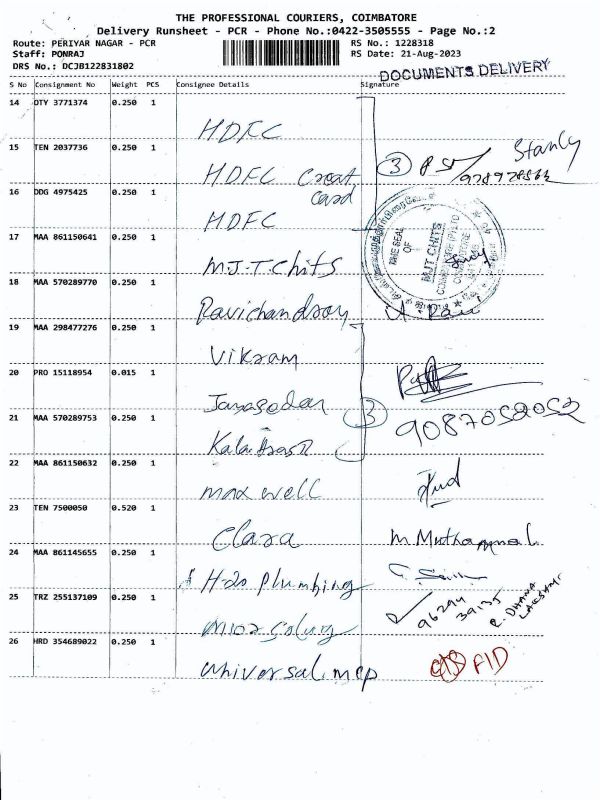 THE PROFESSIONAL COURIERS, COIMBATORE
Delivery Runsheet - PCR - Phone No.:0422-3505555 - Page No.:2
Route: PERIYAR NAGAR - PCR RS No.: 1228318
Staff: PONRAJ RS Date: 21-Aug-2023
DRS No.: DCJB122831802 DOCUMENTS DELIVERY
S No Consignment No Weight PCS Consignee Details Signature
14 DTY 3771374 0.250 1 HDFC
15 TEN 2037736 0.250 1 HDFC Creat Card 3 Stanly
16 DDG 4975425 0.250 1 HDFC
17 MAA 861150641 0.250 1 M.J.T.Chits THE SEAL OF MJT CHITS
18 MAA 570289770 0.250 1 Ravichandran A. Ravi
19 MAA 298477276 0.250 1 Vikram
20 PRO 15118954 0.015 1 Jayaseelan
21 MAA 570289753 0.250 1 3 9087052052
22 MAA 861150632 0.250 1 max well
23 TEN 7500050 0.520 1 Clara M. Muthammal
24 MAA 861145655 0.250 1 H2o Plumbing
25 TRZ 255137109 0.250 1 96294 39135 R. DHANA LAKSHMI
26 HRD 354689022 0.250 1 universal mep FID